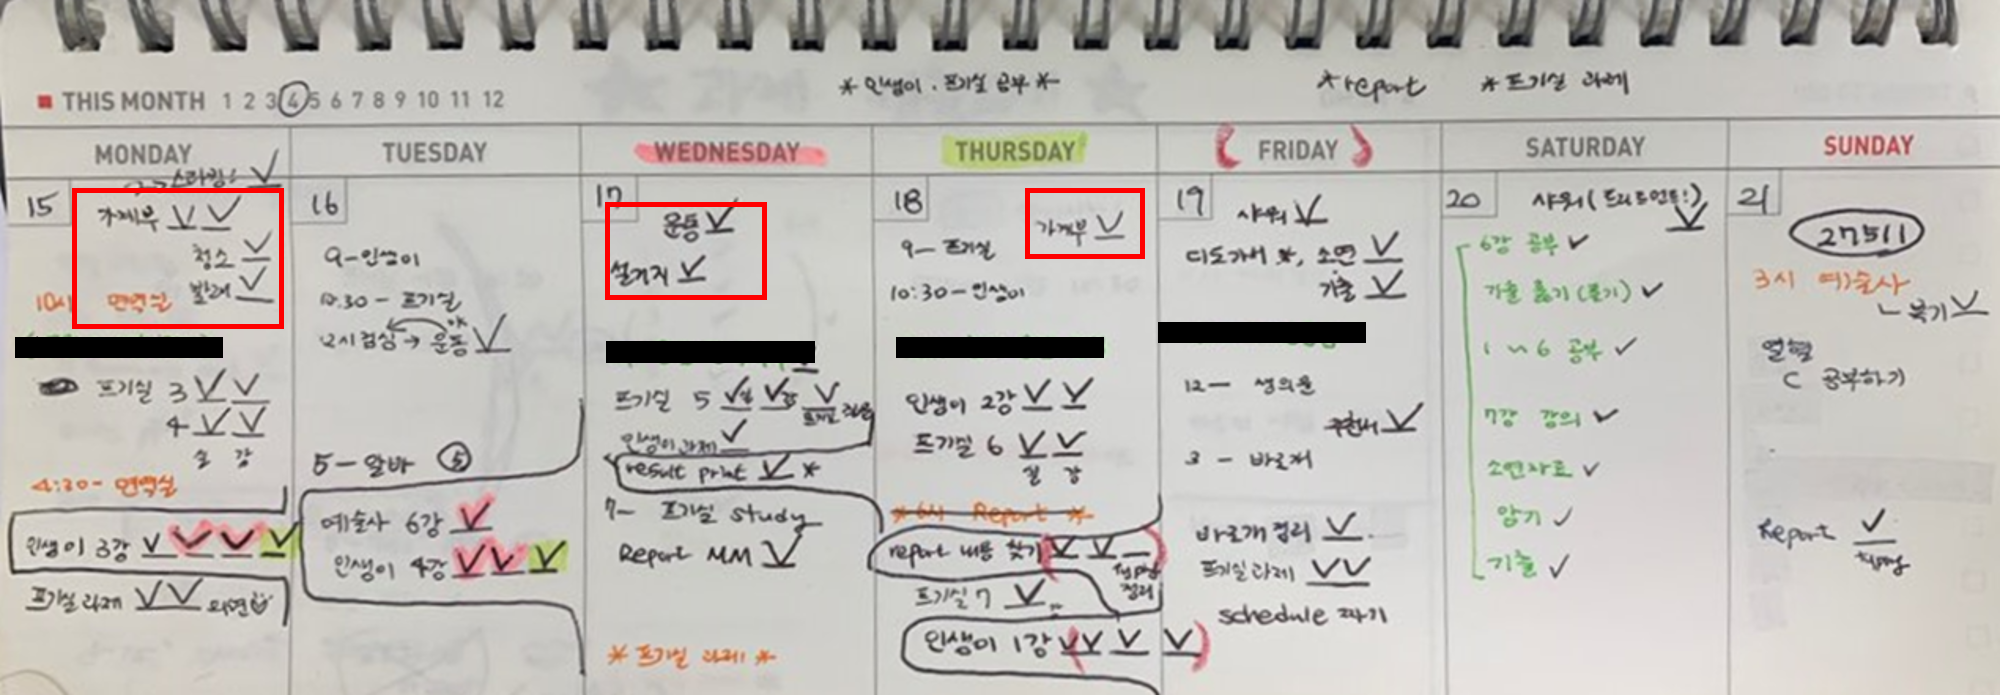 THIS MONTH 1 2 3 4 5 6 7 8 9 10 11 12
*인생이·프기실 공부*
*report
*프기실 과제
MONDAY
TUESDAY
WEDNESDAY
THURSDAY
FRIDAY
SATURDAY
SUNDAY
15
가계부
청소
빨래
10시 면역실
프기실 3
4
실 강
4:30- 면역실
인생이 3강
프기실과제
16
9-인생이
10:30 - 프기실
12시 점심 → 운동
5-알바 5
예술사 6강
인생이 4강
17
운동
설거지
프기실 5
인생이과제
result print *
7- 프기실 study
Report MM
*프기실 과제*
18
가계부
9- 프기실
10:30-인생이
인생이 2강
프기실 6
실 강
*6시 Report *
report 내용 찾기
정리
프기실 7
인생이 1강
19
샤워
소연
기출
12- 생의윤
추천서
3- 바로재
정리
프기실과제
schedule 짜기
20
샤워
6강 공부
기출 풀기
1~6 공부
7강 강의
소연자료
암기
기출
21
27511
3시 예술사
열혈
C 공부하기
Report